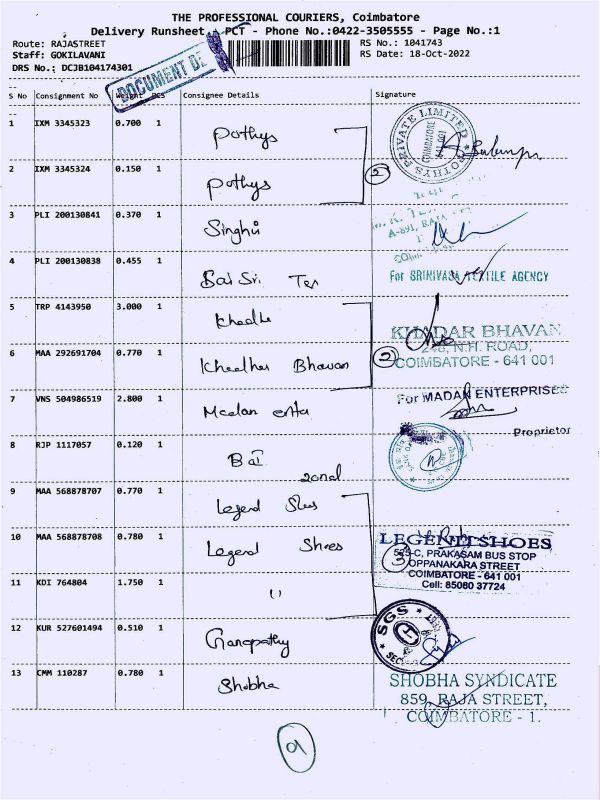 THE PROFESSIONAL COURIERS, Coimbatore
Delivery Runsheet - PCT - Phone No.:0422-3505555 - Page No.:1
Route: RAJASTREET
RS No.: 1041743
Staff: GOKILAVANI
RS Date: 18-Oct-2022
DRS No.: DCJB104174301
DOCUMENT DE
S No Consignment No Weight PCS Consignee Details Signature
1 IXM 3345323 0.700 1 Pothys
POTHYS PRIVATE LIMITED COIMBATORE 641 001
2 IXM 3345324 0.150 1 Pothys
2
3 PLI 200130841 0.370 1 Singhvi
A-891, RAJA
4 PLI 200130838 0.455 1 Sai Sri Tex
For SRINIVASA TEXTILE AGENCY
5 TRP 4143950 3.000 1 Khedhe
KHADAR BHAVAN
248, N.H. ROAD,
COIMBATORE - 641 001
6 MAA 292691704 0.770 1 Khedher Bhavan
2
7 VNS 504986519 2.800 1 Medan enta
For MADAN ENTERPRISES
Proprietor
8 RJP 1117057 0.120 1 BOI
zonal
9 MAA 568878707 0.770 1 Legend Shoes
10 MAA 568878708 0.780 1 Legend Shoes
LEGEND SHOES
585-C, PRAKASAM BUS STOP
OPPANAKARA STREET
COIMBATORE - 641 001
Cell: 85080 37724
3
11 KDI 764804 1.750 1 "
12 KUR 527601494 0.510 1 Ganapathy
SGS
13 CMM 110287 0.780 1 Shobha
SHOBHA SYNDICATE
859, RAJA STREET,
COIMBATORE - 1.